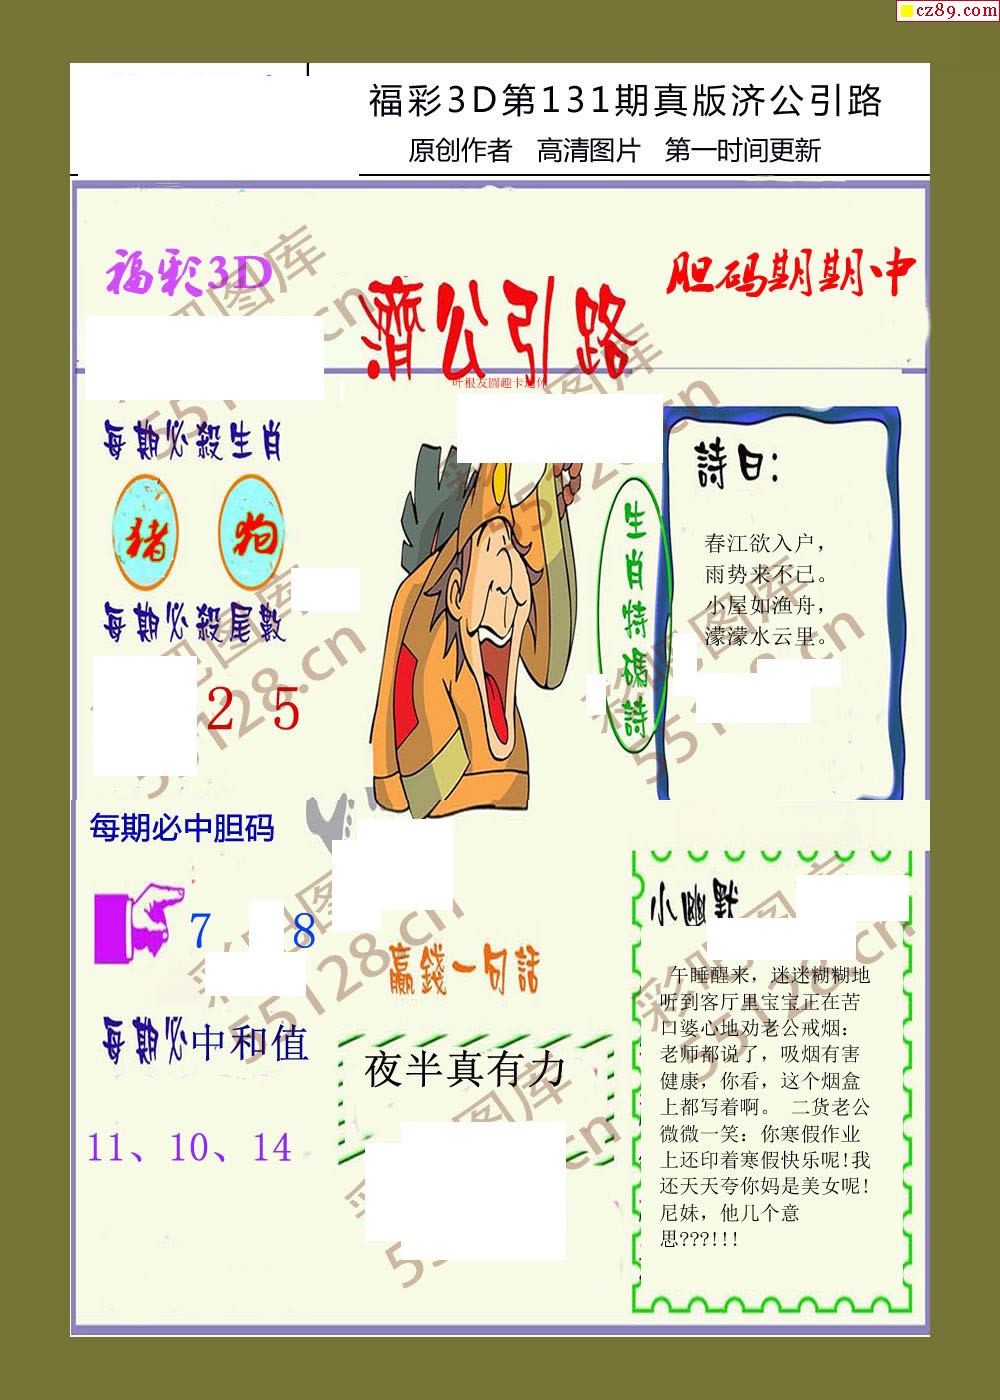 cz89.com
福彩3D第131期真版济公引路
原创作者 高清图片 第一时间更新
福彩3D
濟公引路
胆码期期中
每期必殺生肖
猪 狗
每期必殺尾數
2 5
每期必中胆码
7 8
每期必中和值
11、10、14
生肖特碼詩
詩曰:
春江欲入户,
雨势来不己。
小屋如渔舟,
濛濛水云里。
贏錢一句話
夜半真有力
小幽默
午睡醒来, 迷迷糊糊地
听到客厅里宝宝正在苦
口婆心地劝老公戒烟:
老师都说了, 吸烟有害
健康, 你看, 这个烟盒
上都写着啊。 二货老公
微微一笑: 你寒假作业
上还印着寒假快乐呢!我
还天天夸你妈是美女呢!
尼妹, 他几个意
思???!!!
彩吧图库
55128.cn